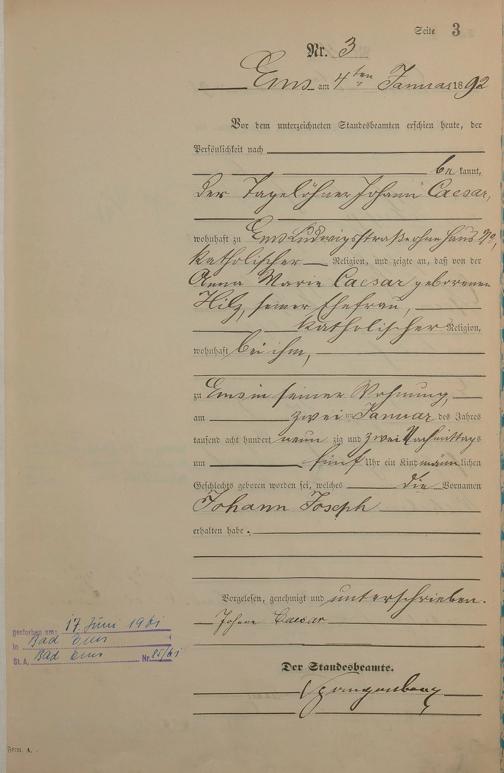 Seite 3
Nr. 3
Ems am 4ten Januar 1892
Vor dem unterzeichneten Standesbeamten erschien heute, der
Persönlichkeit nach
bekannt,
der Tagelöhner Johann Caesar,
wohnhaft zu Ems Ludwigsstraße ohne Haus No,
katholischer Religion, und zeigte an, daß von der
Anna Marie Caesar geborenen
Hilz, seiner Ehefrau,
katholischer Religion,
wohnhaft bei ihm,
zu Ems in seiner Wohnung,
am zwei ten Januar des Jahres
tausend acht hundert neun zig und zwei Nachmittags
um fünf Uhr ein Kind männlichen
Geschlechts geboren worden sei, welches die Vornamen
Johann Joseph
erhalten habe.
Vorgelesen, genehmigt und unterschrieben.
Johann Caesar
Der Standesbeamte.
Spangenberg
gestorben am: 17. Juni 1961
in Bad Ems
St. A. Bad Ems Nr. 85/61
Form. A.